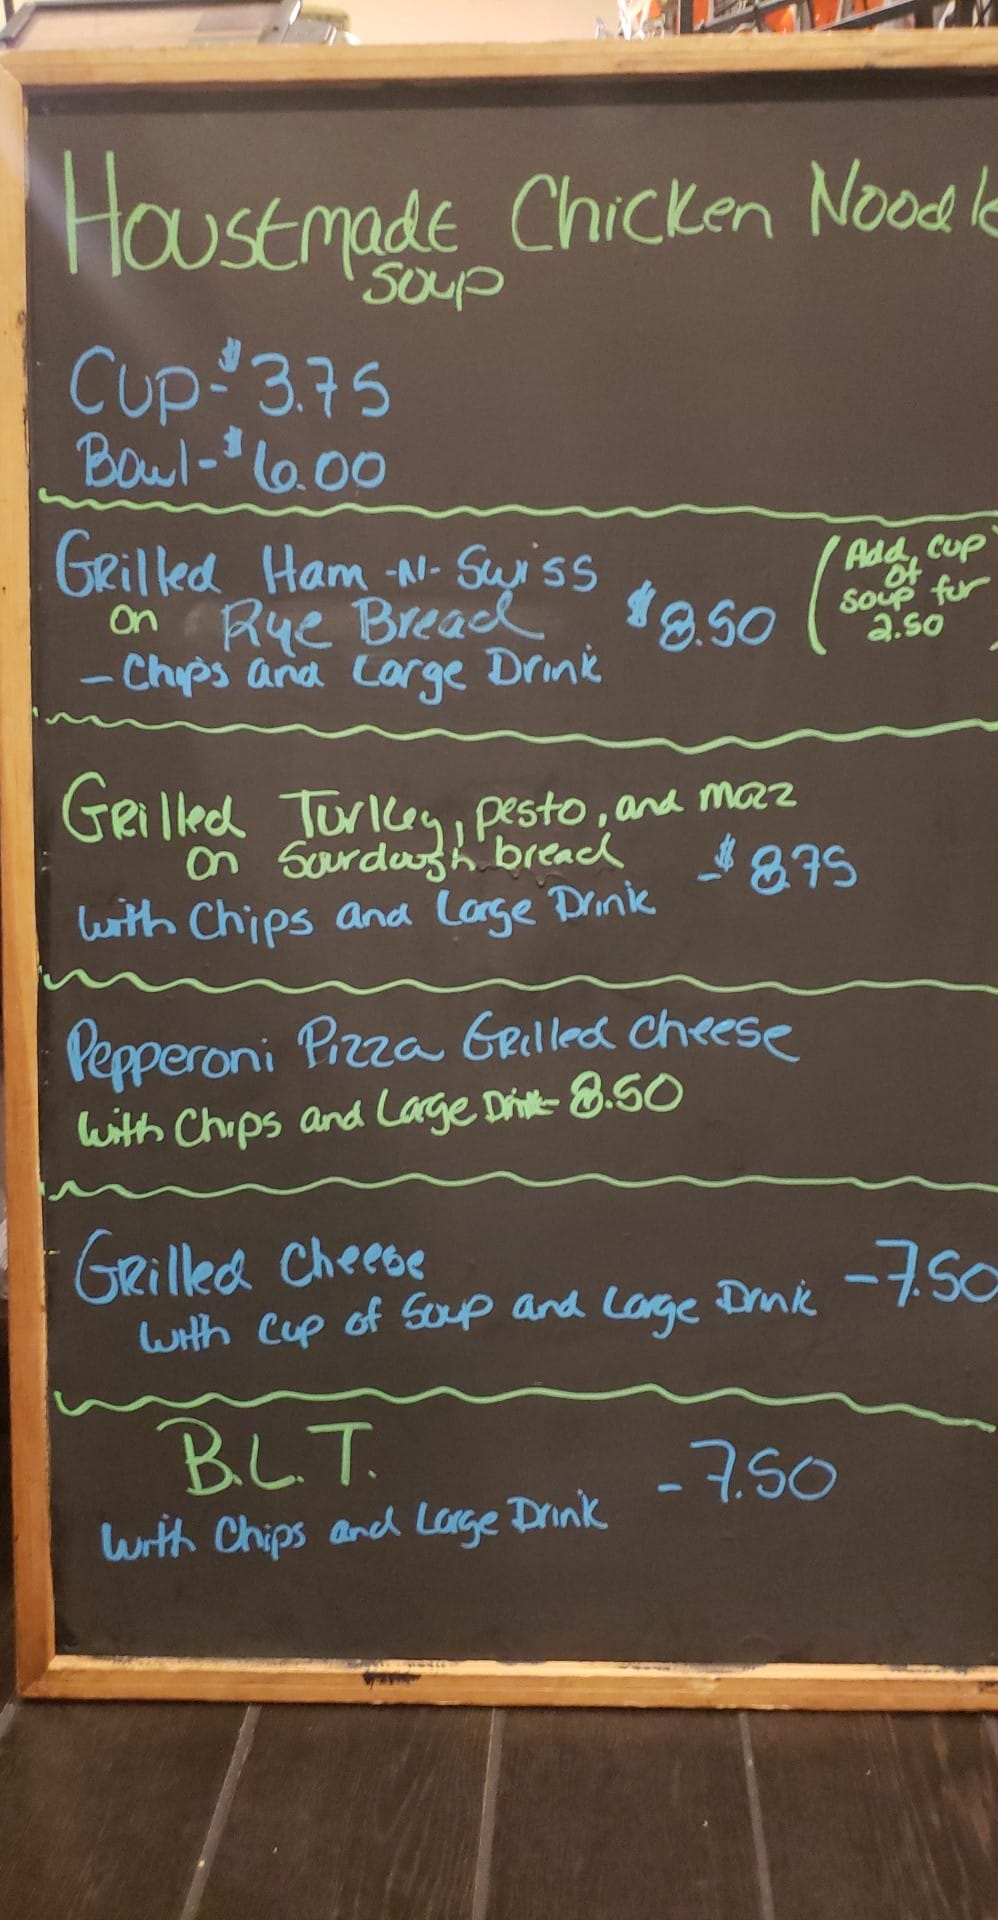 Housemade Chicken Noodle
Soup
Cup - $3.75
Bowl - $6.00
Grilled Ham -N- Swiss
on Rye Bread $8.50
- Chips and Large Drink
(Add cup
of
soup for
2.50
Grilled Turkey, pesto, and mozz
on Sourdough bread - $8.75
with Chips and Large Drink
Pepperoni Pizza Grilled Cheese
with Chips and Large Drink - 8.50
Grilled Cheese - 7.50
with Cup of Soup and Large Drink
B.L.T. - 7.50
with Chips and Large Drink